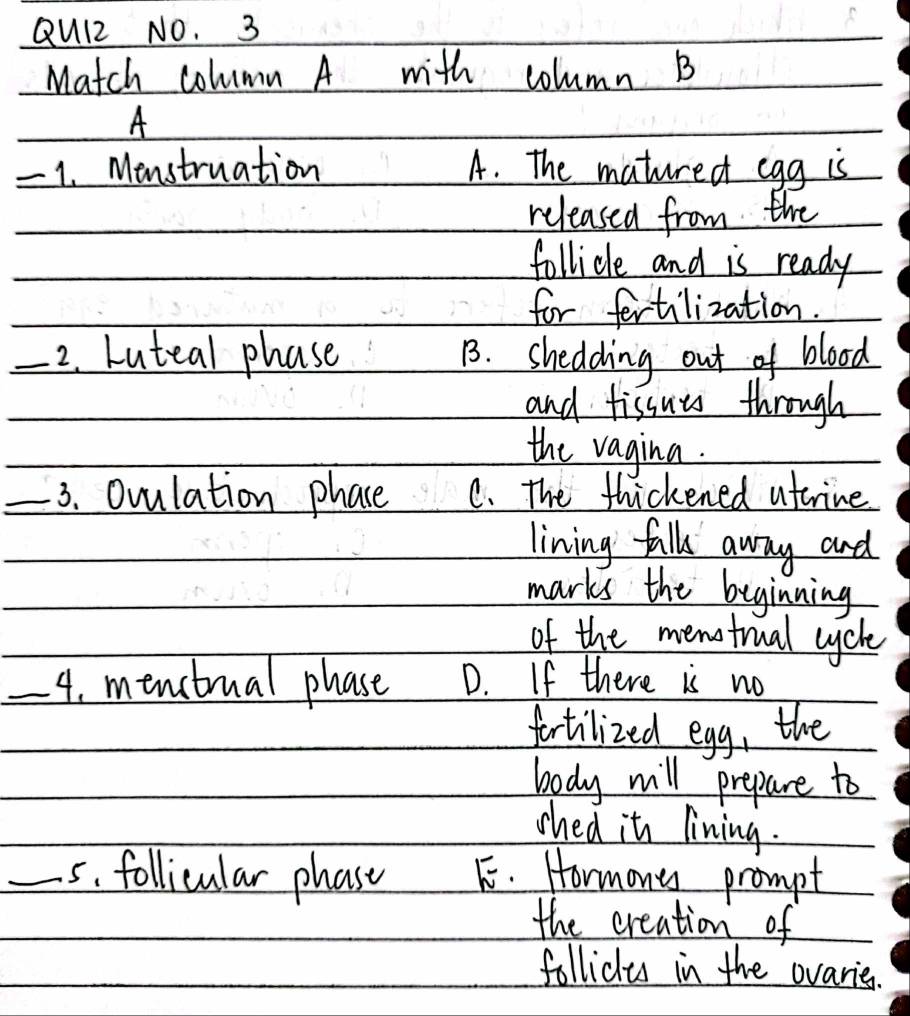 QUIZ NO. 3
Match column A with column B
A
_1. Menstruation A. The matured egg is
released from the
follicle and is ready
for fertilization.
_2. Luteal phase B. Shedding out of blood
and tissues through
the vagina.
_3. Ovulation phase C. The thickened uterine
lining falls away and
marks the beginning
of the menstrual cycle
_4. menstrual phase D. If there is no
fertilized egg, the
body will prepare to
shed its lining.
_5. follicular phase E. Hormones prompt
the creation of
follicles in the ovaries.